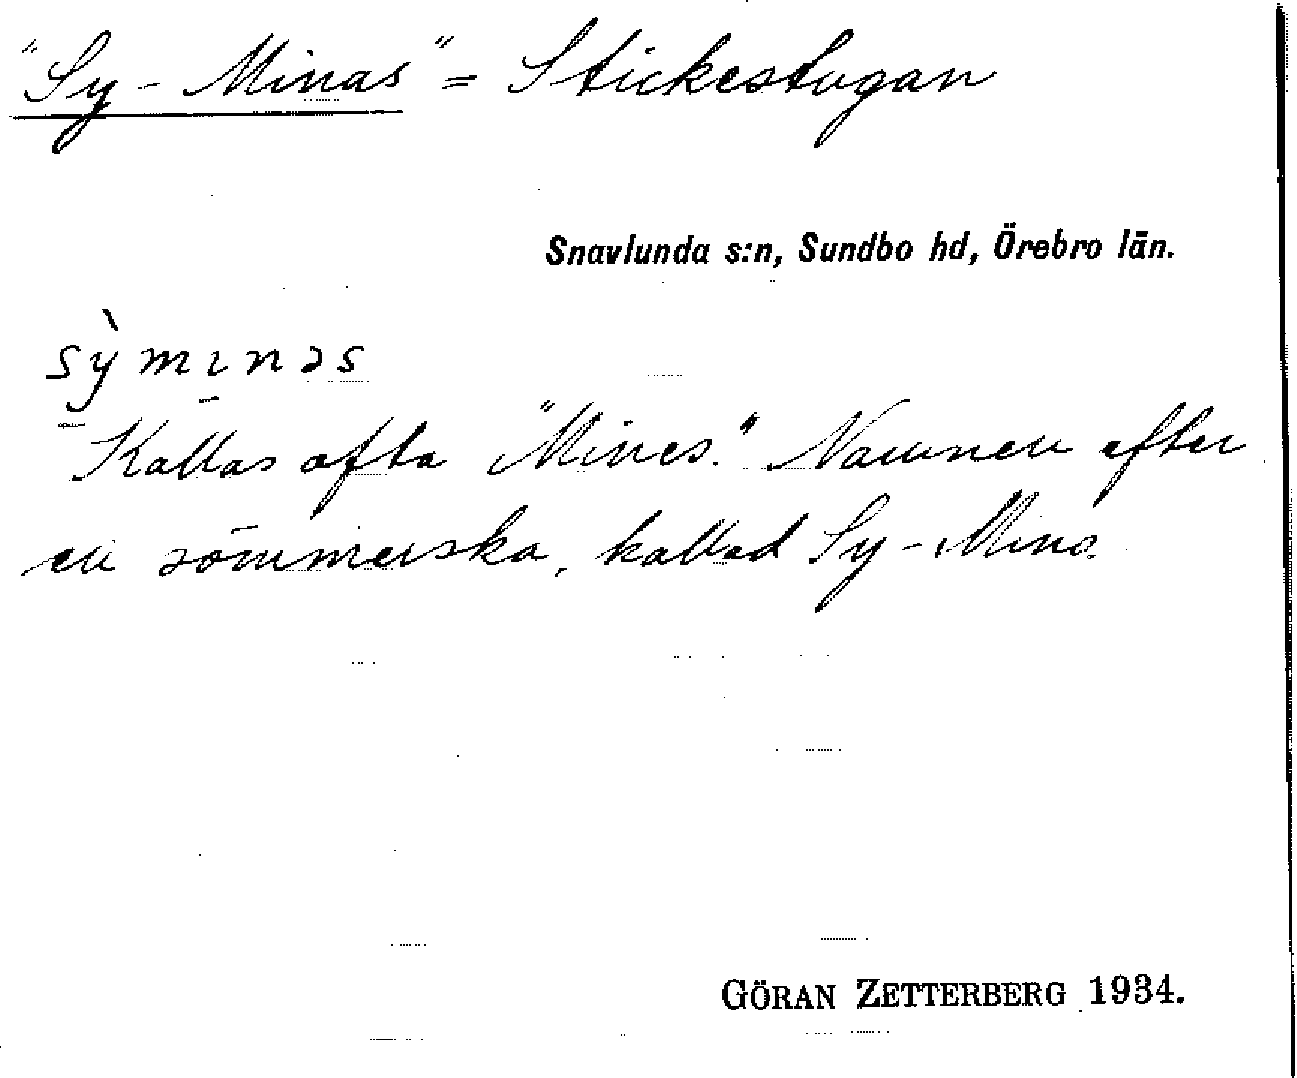 "Sy-Minas" = Stickestugan
Snavlunda s:n, Sundbo hd, Örebro län.
sỳmınəs
Kallas ofta "Mines". Namnen efter
en sömmerska, kallad Sy-Mina.
GÖRAN ZETTERBERG 1934.